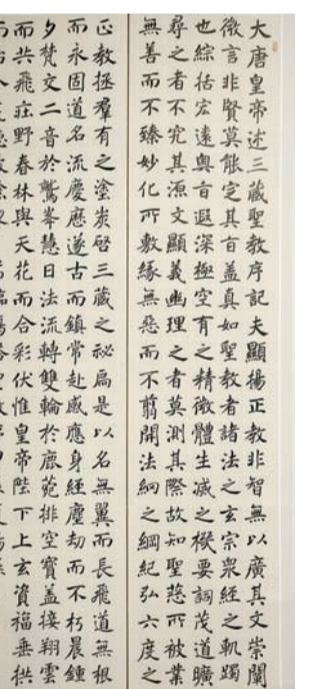 大唐皇帝述三藏聖教序記夫顯揚正教非智無以廣其文崇闡
微言非賢莫能定其旨盖真如聖教者諸法之玄宗衆經之軌躅
也綜括宏遠奧旨遐深極空有之精微體生滅之機要詞茂道曠
尋之者不究其源文顯義幽理之者莫測其際故知聖慈所被業
無善而不臻妙化所敷緣無惡而不翦開法網之綱紀弘六度之
正教拯羣有之塗炭啓三藏之祕扃是以名無翼而長飛道無根
而永固道名流慶歷遂古而鎮常赴感應身經塵劫而不朽晨鍾
夕梵交二音於鷲峯慧日法流轉雙輪於鹿菀排空寶盖接翔雲
而共飛莊野春林與天花而合彩伏惟皇帝陛下上玄資福垂拱